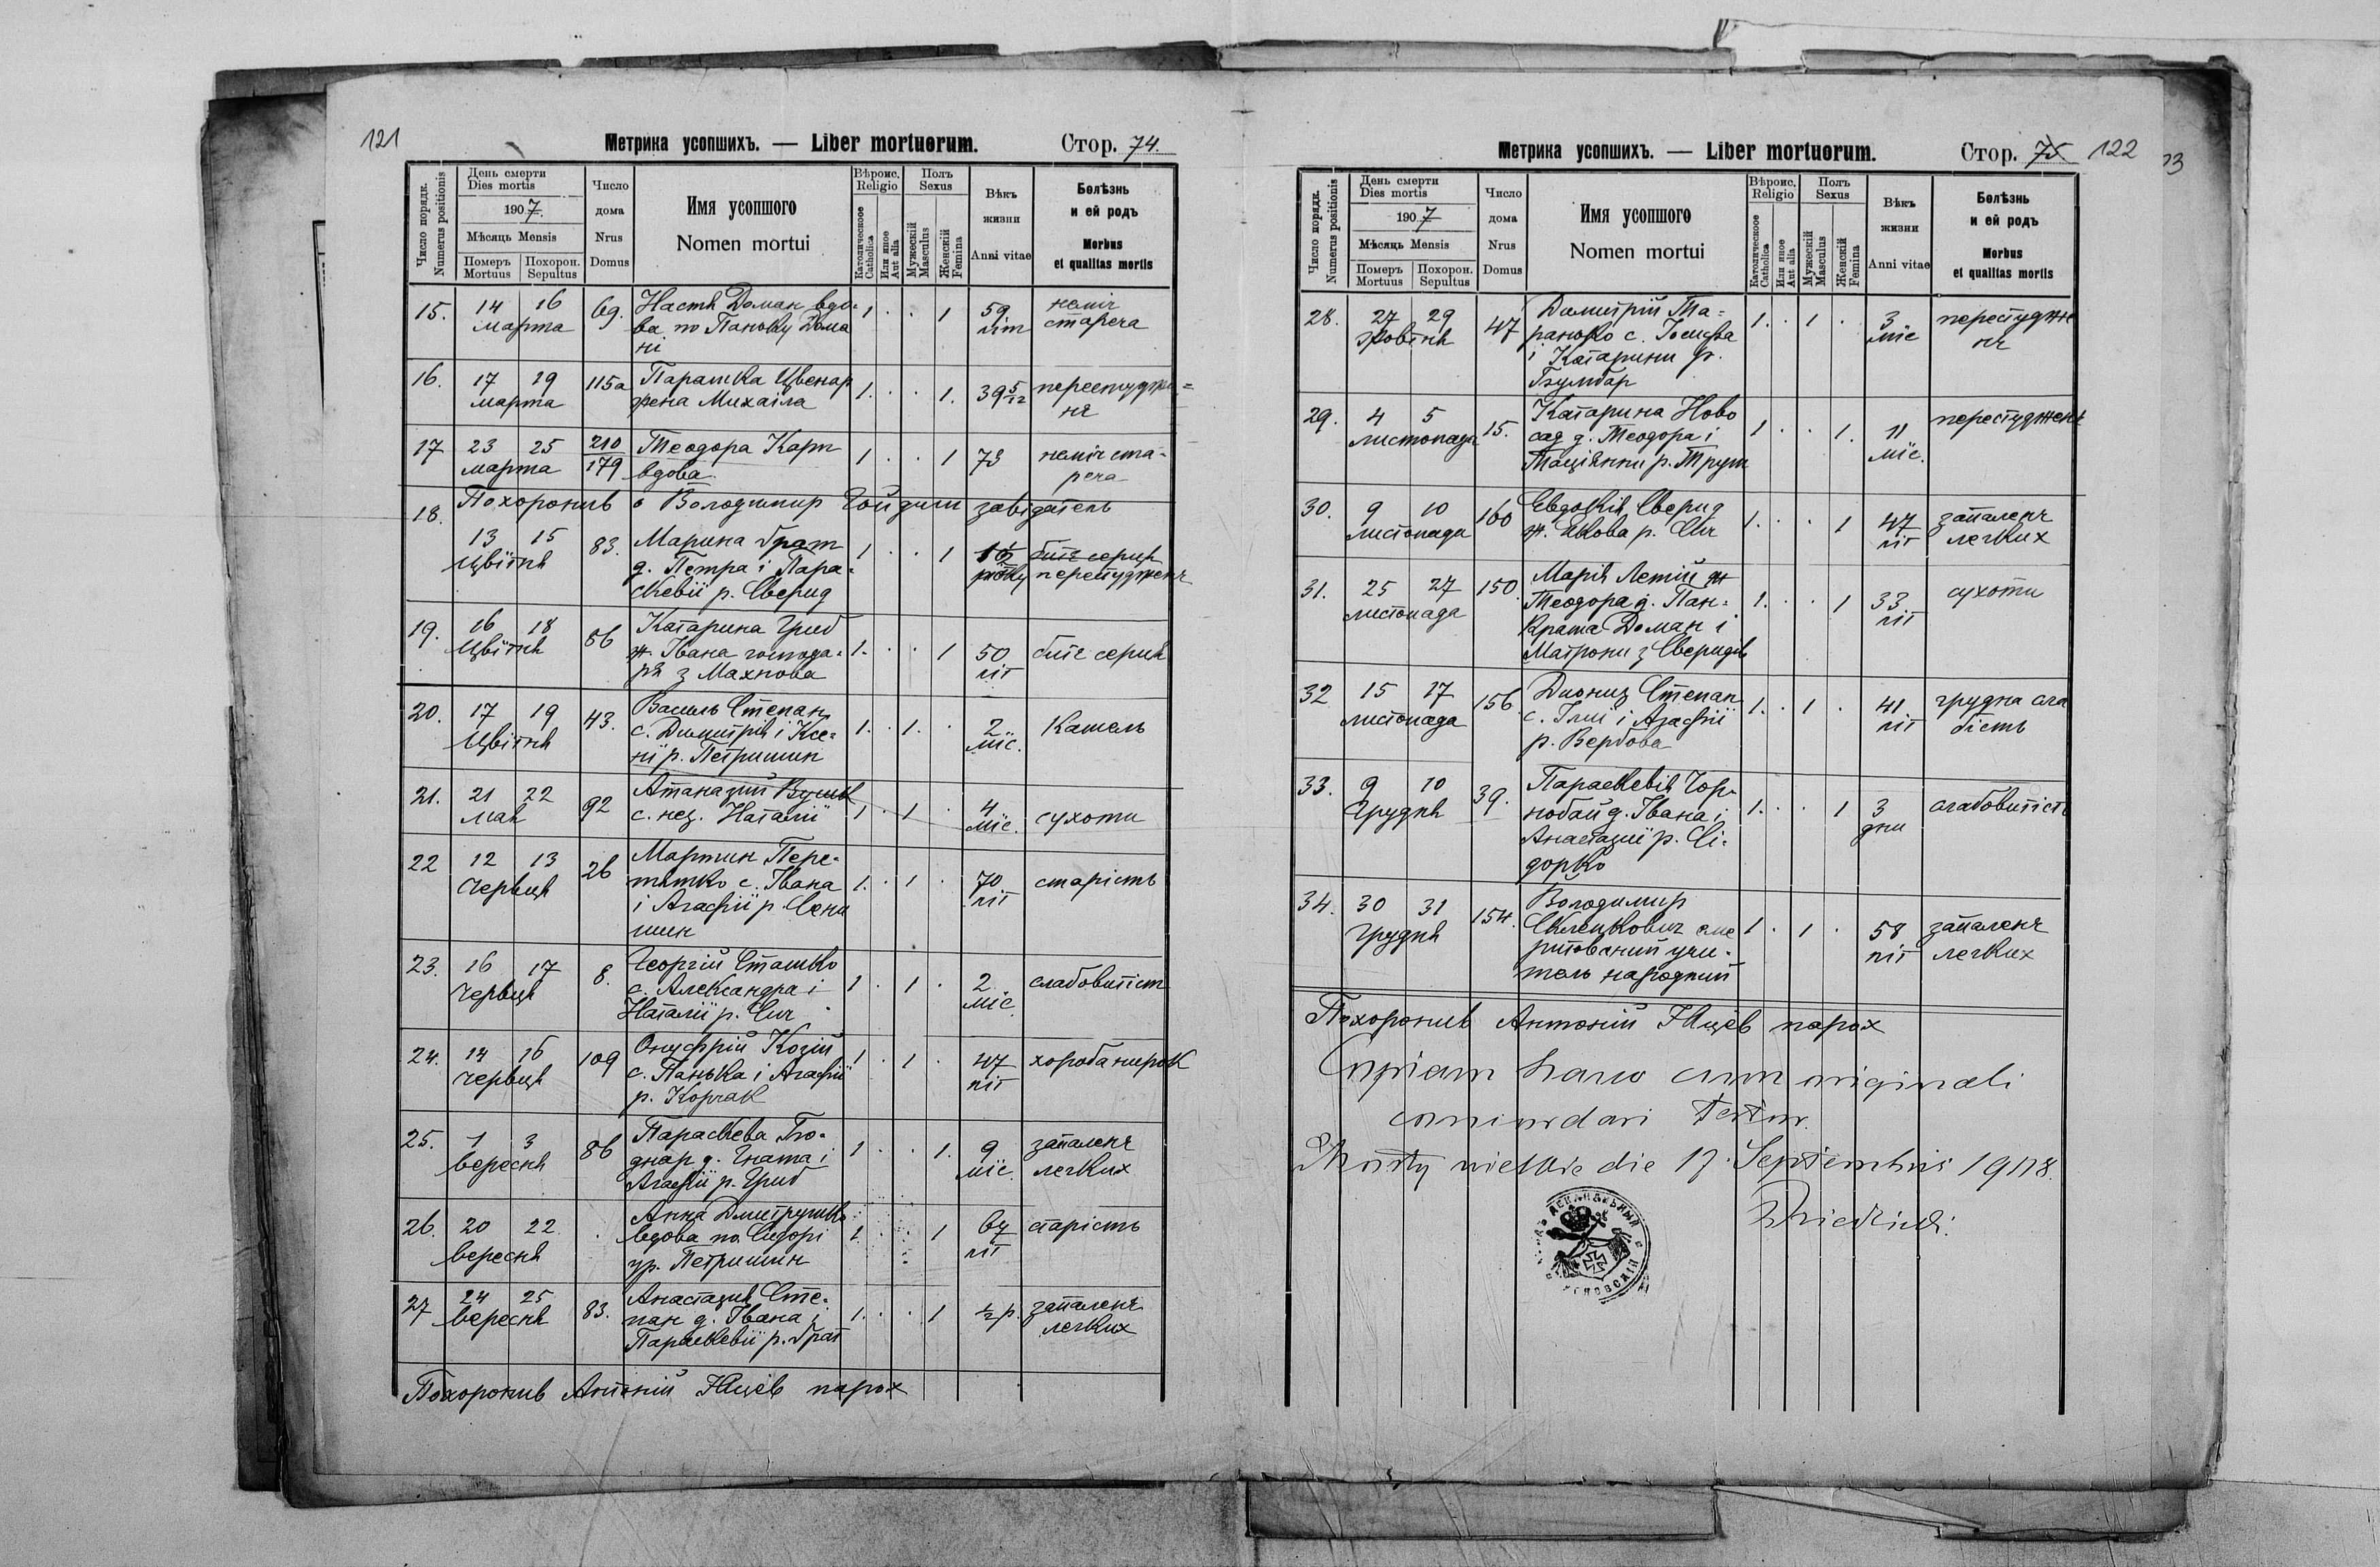 121
Метрика усопшихъ. — Liber mortuorum.
Стор. 74.
Число порядк.
Numerus positionis
День смерти
Dies mortis
1907.
Мѣсяць Mensis
Померъ Mortuus
Похорон. Sepultus
Число дома
Nrus Domus
Имя усопшого
Nomen mortui
Вѣроис. Religio
Католическоое Catholica
Или иное Aut alia
Полъ Sexus
Мужескій Masculus
Женскій Femina
Вѣкъ жизни
Anni vitae
Болѣзнь и ей родъ
Morbus et qualitas mortis
15. 14 16 69. Настя Доман вдо- 1 . . 1 59 неміч
марта ва по Паньку Дома літ стареча
ні
16. 17 19 115а Парашка Цвенар 1. . . 1. 39 5/12 переступжє=
марта жена Михаіла нє
17 23 25 210/179 Теодора Карп 1 . . 1 73 неміч ста-
марта вдова реча
18. Похоронив о Володимир Гойдич завідатель
13 15 83. Марина Грат 1 . . 1 битє серця
Цвітня д. Петра і Пара- року перестудженє
скевії р. Сверид
19. 16 18 86 Катарина Гриб 1. . . 1 50 битє серця
Цвітня ж. Івана господа- літ
ря з Махнова
20. 17 19 43. Василь Степан 1. . 1. . 2 Кашель
Цвітня с. Димитрія і Ксе- міс.
нї р. Петришин
21. 21 22 92 Атаназий 1 . 1 . 4 сухоти
мая с. нез. Наталії міс.
22 12 13 26 Мартин Пере- 1. . 1 . 70 старість
Червця тятко с. Івана літ
і Агафії р. Сени
шин
23. 16 17 8. Георгій Сташко 1 . 1 . 2 слабовитість
Червця с. Александра і міс.
Наталії р. Сич
24. 14 16 109 Онуфрій Козій 1 . 1 . 47 хороба нирок
червця с. Панька і Агафії літ
р. Корчак
25. 1 3 86 Параскева Бо- 1 . . 1. 9 запаленє
вересня днар д. Гната і міс. легких
Агафії р. Гриб
26. 20 22 . Анна Дмитрушко 1. . . 1 64 старість
вересня вдова по Сидорі літ
ур. Петришин
27 24 25 83. Анастазия Сте- 1. . . 1 1/2 р. запаленє
вересня пан д. Івана і легких
Параскевії р. Грат
Похоронив Антоній Яцїв парох
Метрика усопшихъ. — Liber mortuorum.
Стор. 75 122
Число порядк.
Numerus positionis
День смерти
Dies mortis
1907
Мѣсяць Mensis
Померъ Mortuus
Похорон. Sepultus
Число дома
Nrus Domus
Имя усопшого
Nomen mortui
Вѣроис. Religio
Католическоое Catholica
Или иное Aut alia
Полъ Sexus
Мужескій Masculus
Женскій Femina
Вѣкъ жизни
Anni vitae
Болѣзнь и ей родъ
Morbus et qualitas mortis
28. 27 29 47 Димитрій Та= 1. . 1 . 3 перестудже
Жовтня ранько с. Йосифа міс нє
і Катарини р.
29. 4 5 15. Катарина Ново 1 . . 1. 11 перестуджене
листопада сад д. Теодора і міс.
Тацїянни р. Трут
30. 9 10 160 Евдокія Сверид 1. . . 1 47 запаленє
листопада ж. Якова р. Сич літ легких
31. 25 27 150. Марія Летїй ж 1. . . 1 33 сухоти
листопада Теодора д. Пан- літ
крата Доман і
Матрони з Сверидів
32 15 17 156. Диониз Степан 1. . 1 . 41 грудна сла
листопада с. Ілиї і Агафії літ бість
р. Вербова
33. 9 10 39. Параскевія Чор- 1. . . 1 3 слабовитість
Грудня нобай д. Івана і дни
Анастазиї р. Сі-
дорко
34. 30 31 154. Володимир 1 . 1 . 58 запаленє
Грудня Скленкович еме літ легких
ритований учи-
тель народний
Похоронив Антоній Яцїв парох
Copiam hanc cum originali
concordari testor.
Mosty wielkie die 17. Septembris 1908.